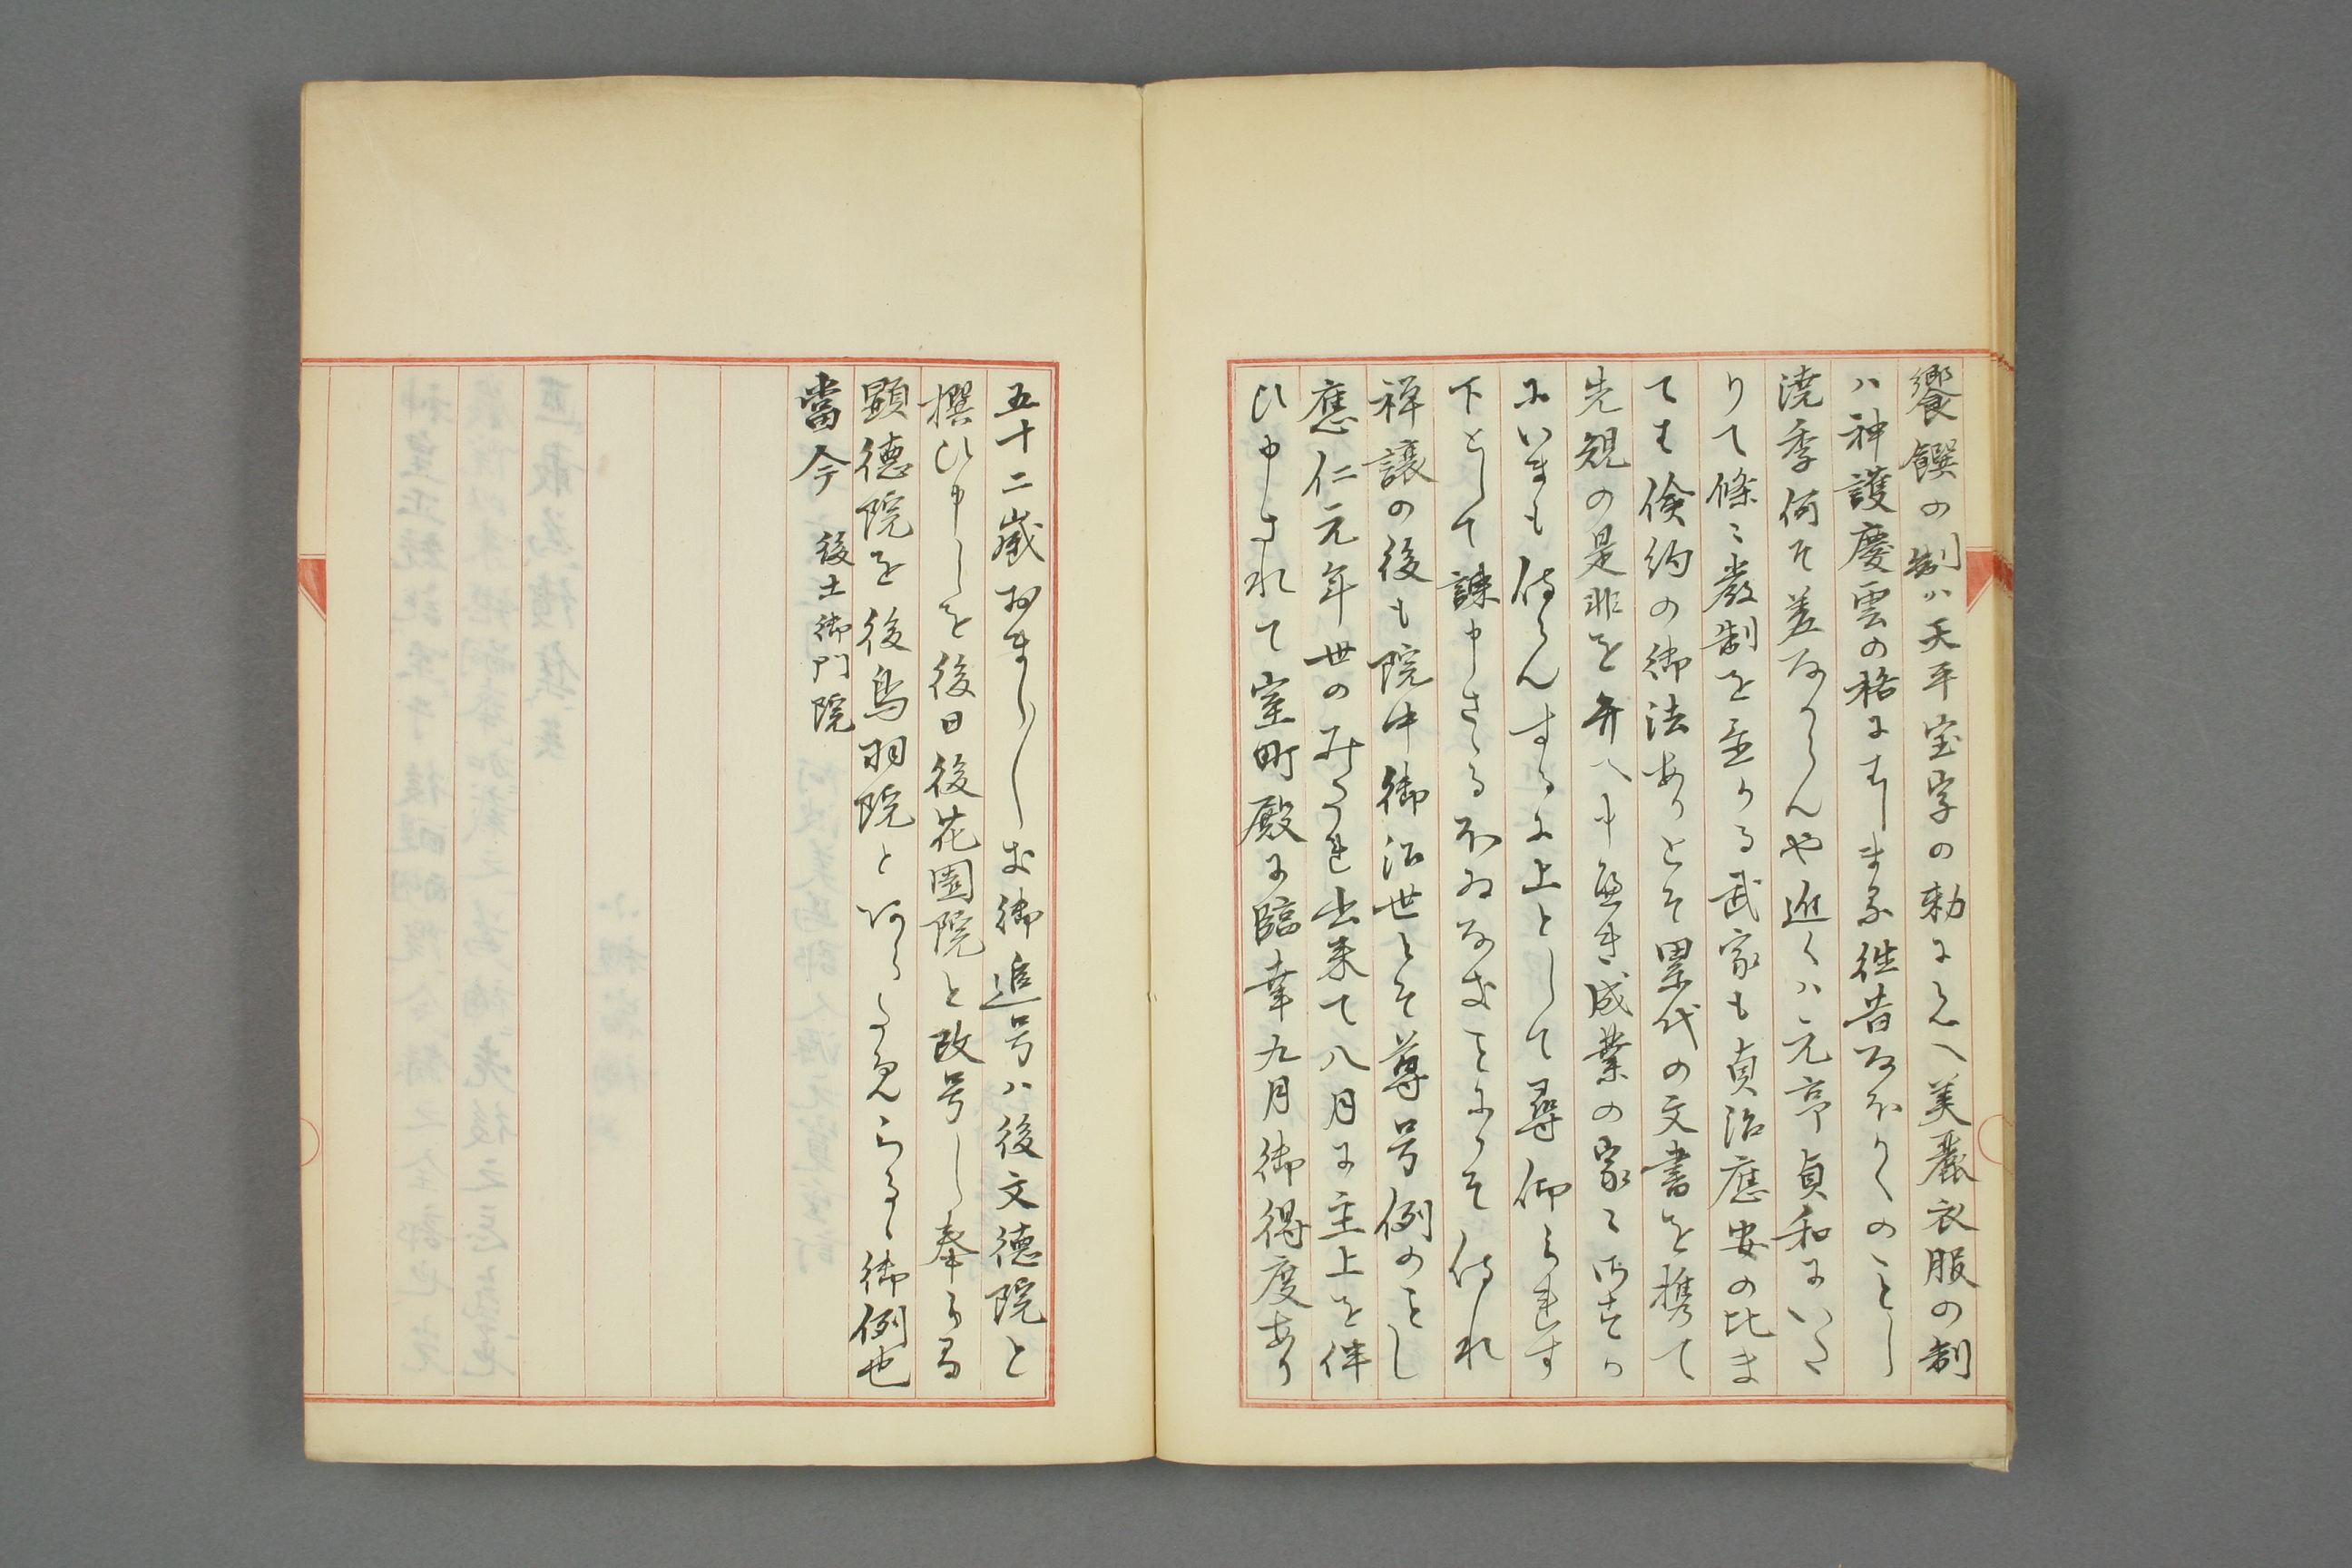 饗饌の制ハ天平宝字の勅にみへ美麗衣服の制
ハ神護慶雲の格に 往昔なをかくのことし
澆季何そ差なからんや近くハ元亨貞和にいた
りて條〻嚴制を重かる武家も貞治應安の比ま
ても倹約の御法ありとそ累代の文書を携て
先規の是非を弁へ申へき成業の家〻
にいまも侍らんするに上として尋仰られす
下として諫申さゝる なることにこそ侍れ
禅譲の後も院中御治世とそ尊号例のことし
應仁元年世のみたれ出来て八月に主上を伴
ひ申されて室町殿に臨幸九月御得度あり
五十二歳おまし〳〵し 御追号ハ後文徳院と
撰ひ申しを後日後花園院と改号し奉らる
顕徳院を後鳥羽院と あらためらるゝ御例也
當今 後土御門院